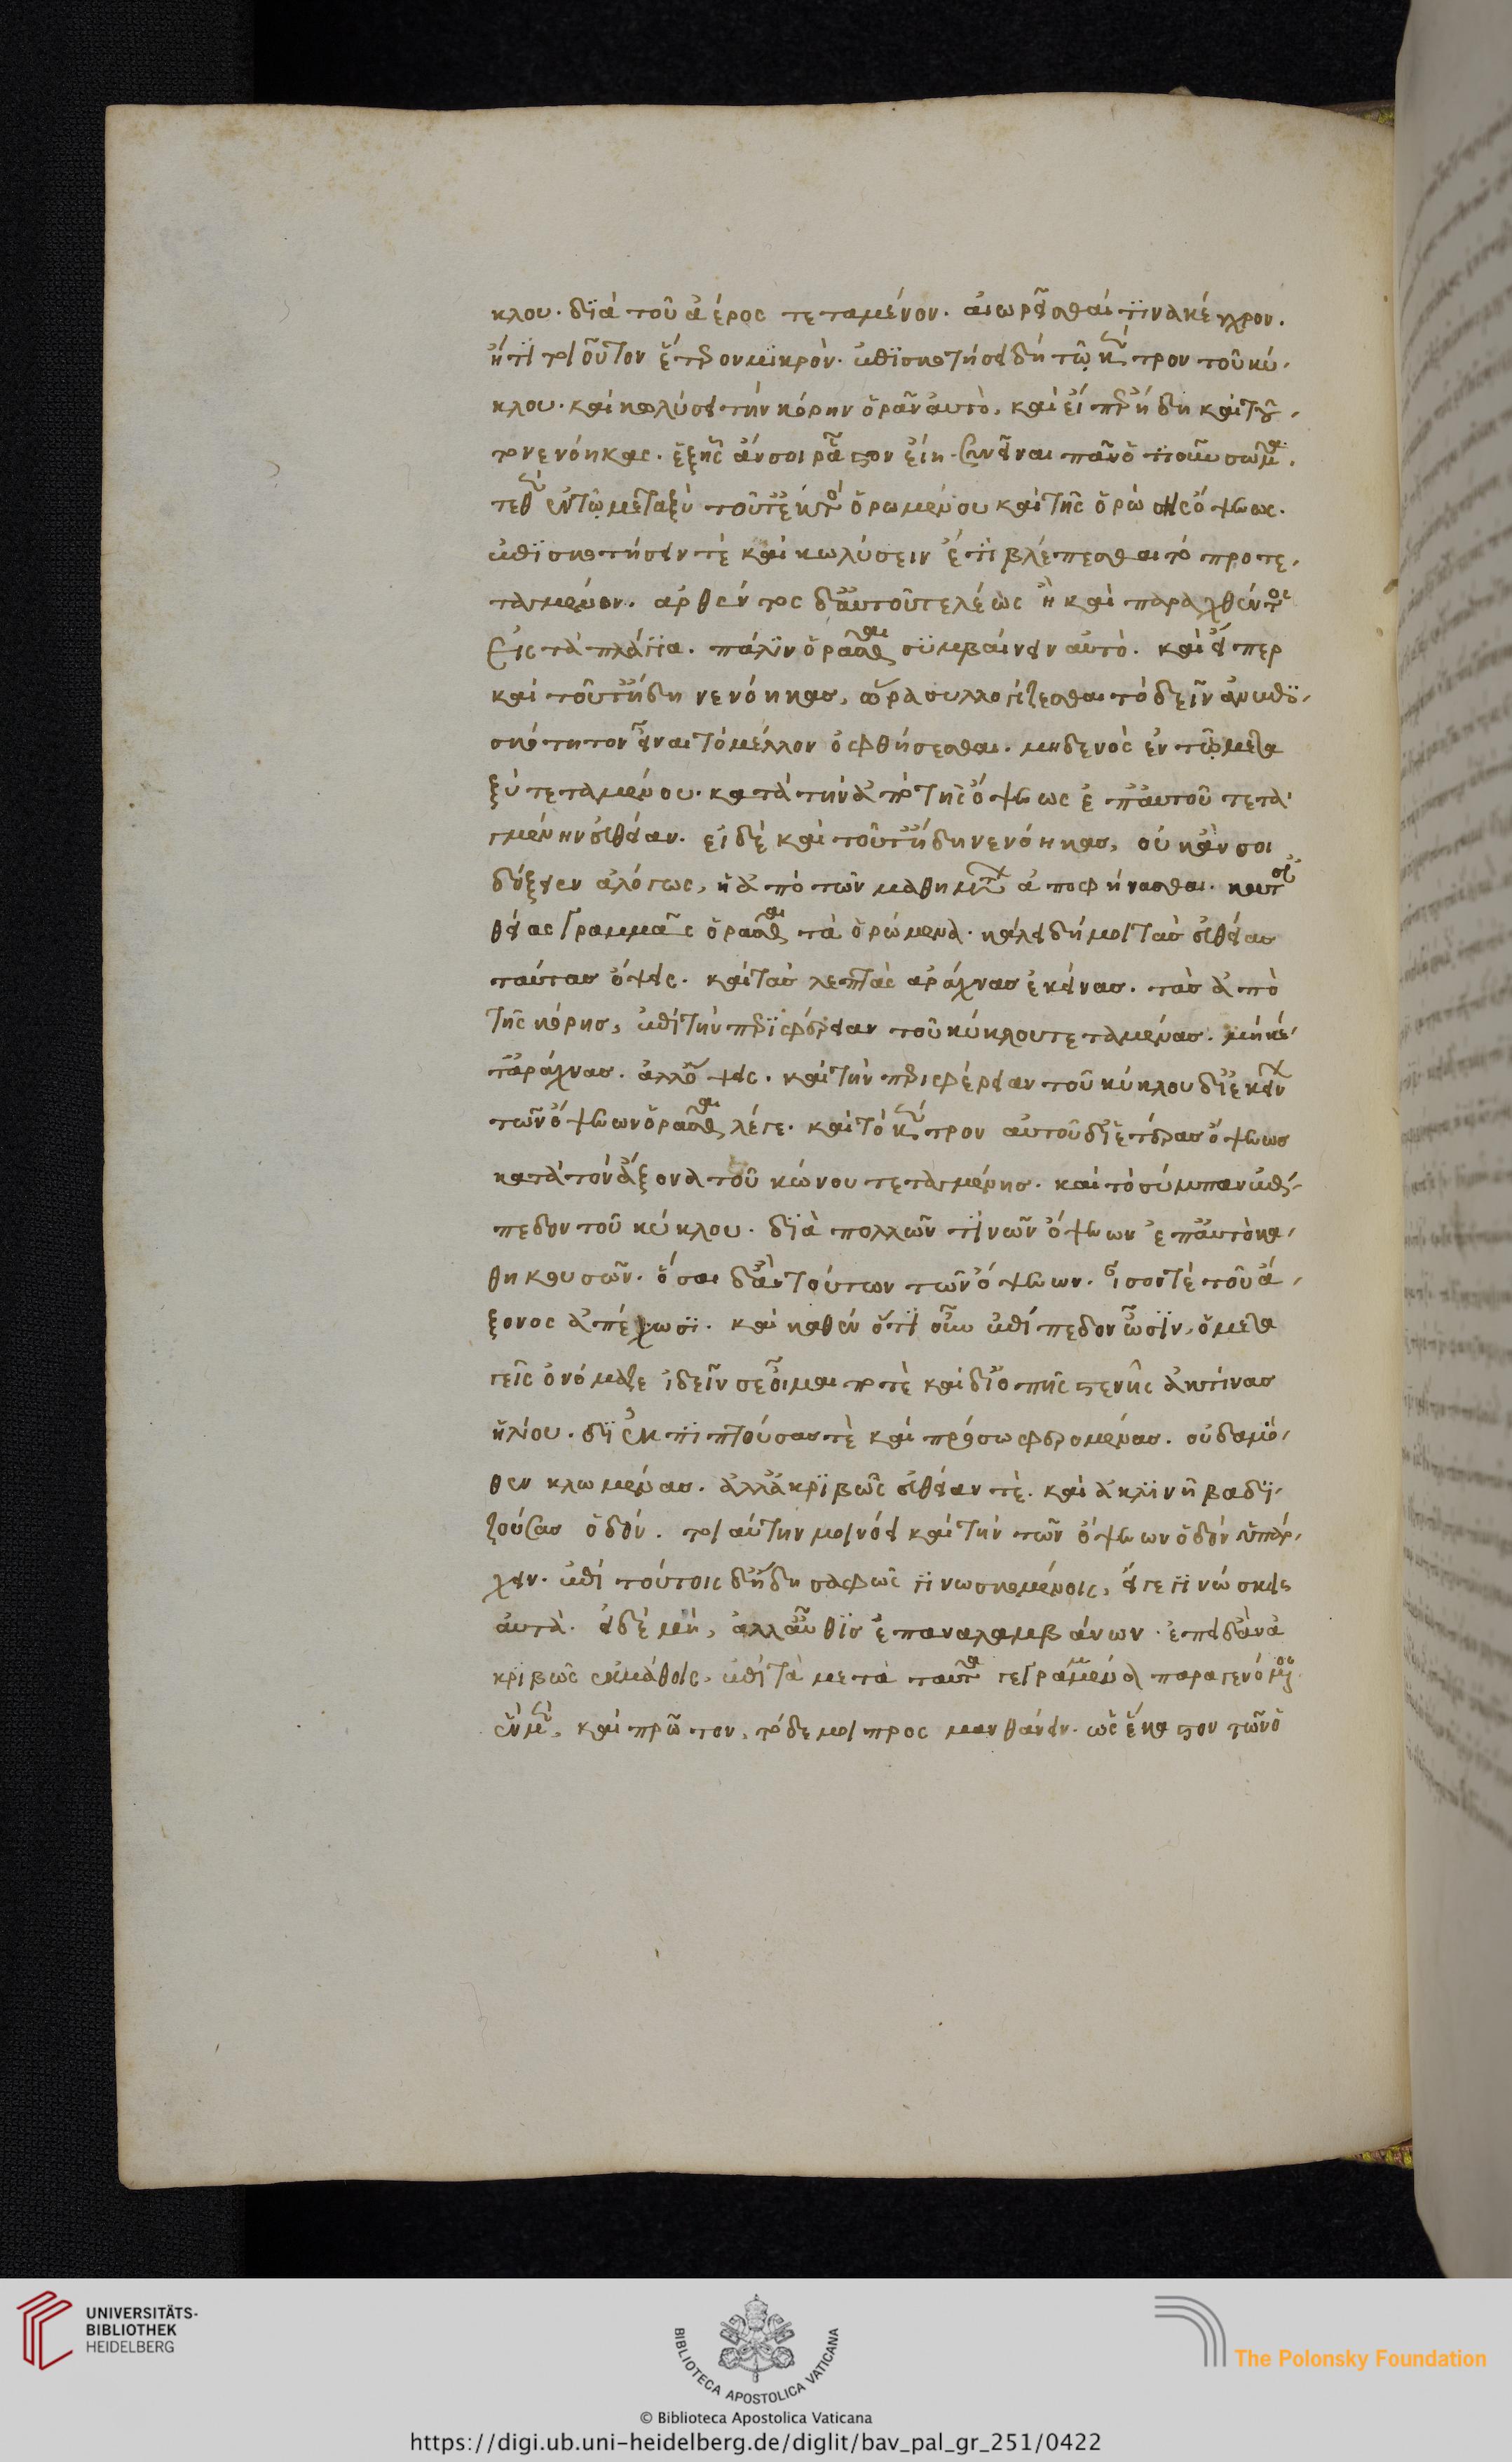 κλου· διὰ τοῦ ἀέρος τεταμένον· αἰωρεῖσθαί τινα κέγχρον·
ἤ τι τοιοῦτον ἕτερον μικρὸν· ἐπισκοτήσει δὴ τῷ κέντρον τοῦ κύ-
κλου· καὶ κωλύσει τὴν κόρην ὁρᾶν αὐτὸ, καὶ εἴπερ ἤδη καὶ τοῦ-
το νενόηκας· ἑξῆς ἄν σοι ρᾷστον εἴη συνεῖναι πᾶν ὅτι οὖν σῶμα·
τεθὲν ἐν τῷ μεταξὺ τοῦτε κύκλου ὁρωμένου καὶ τῆς ὁρώσης ὄψεως·
ἐπισκοτήσειν τὲ καὶ κωλύσειν ἔτι βλέπεσθαι τὸ προτε-
ταγμένον· ἀρθέντος δ' αὐτοῦ τελέως ἢ καὶ παραχθέντος
εἰς τὰ πλάγια· πάλιν ὁρᾶσθαι συμβαίνειν αὐτὸ· καὶ εἴπερ
καὶ τοῦτ' ἤδη νενόηκας, ὥρα συλλογίζεσθαι τὸ δεῖν ἀνεπι-
σκότητον εἶναι τὸ μέλλον ὀφθήσεσθαι· μηδενὸς ἐν τῷ μετα
ξὺ τεταγμένου· κατὰ τὴν ἀπὸ τῆς ὄψεως ἐπ' αὐτοῦ τετα
γμένην εὐθεῖαν· εἰ δὲ καὶ τοῦτ' ἤδη νενόηκας, οὐκ ἄν σοι
δόξειεν ἀλόγως, ἢ ἀπὸ τῶν μαθημάτων ἀποφήνασθαι· κατ' εὐ
θείας γραμμᾶς ὁρᾶσθαι τὰ ὁρώμενα· κάλει δή μοι τὰς εὐθείας
ταύτας ὄψεις· καὶ τὰς λεπτὰς ἀράχνας ἐκείνας· τὰς ἀπὸ
τῆς κόρης, ἐπὶ τὴν περιφέρειαν τοῦ κύκλου τεταμένας· μηκέ-
τ' ἀράχνας· ἀλλ' ὄψεις· καὶ τὴν περιφέρειαν τοῦ κύκλου δι' ἐκείνων
τῶν ὄψεων ὁρᾶσθαι λέγε· καὶ τὸ κέντρον αὐτοῦ δι' ἑτέρας ὄψεως
κατὰ τὸν ἄξονα τοῦ κώνου τεταγμένης· καὶ τὸ σύμπαν ἐπί-
πεδον τοῦ κύκλου· διὰ πολλῶν τινῶν ὄψεων ἐπ' αὐτὸ κα-
θηκουσῶν· ὅσαι δ' ἂν τούτων τῶν ὄψεων· ἴσον τὲ τοῦ ἄ-
ξονος ἀπέχωσι· καὶ καθ' ἓν ὅτι οὖν ἐπίπεδον ὦσιν, ὁμετα
γεῖς ὀνόμαζε ἰδεῖν σε οἶμαι ποτὲ καὶ δι' ὀπῆς στενῆς ἀκτίνας
ἡλίου· δι' ἐκπιπτούσας τὲ καὶ πρόσω φερομένας· οὐδαμό-
θεν κλωμένας· ἀλλ' ἀκριβῶς εὐθεῖαν τὲ· καὶ ἀκλινῆ βαδι-
ζούσας ὁδόν· τοιαύτην μοι νόει καὶ τὴν τῶν ὄψεων ὁδὸν ὑπάρ-
χειν· ἐπὶ τούτοις δ' ἤδη σαφῶς γινωσκομένοις, εἴγε γινώσκεις
αὐτὰ· εἰ δὲ μὴ, ἀλλ' αὖθις ἐπαναλαμβάνων· ἐπειδὰν ἀ
κριβῶς ἐκμάθοις, ἐπὶ τὰ μετὰ ταῦτα γεγραμμένα παραγενόμενος
ἓν μὲν, καὶ πρῶτον, τόδε μοι προσμανθάνειν· ὡς ἕκαστον τῶν ὁ
UNIVERSITÄTS-
BIBLIOTHEK
HEIDELBERG
BIBLIOTECA APOSTOLICA VATICANA
The Polonsky Foundation
© Biblioteca Apostolica Vaticana
https://digi.ub.uni-heidelberg.de/diglit/bav_pal_gr_251/0422